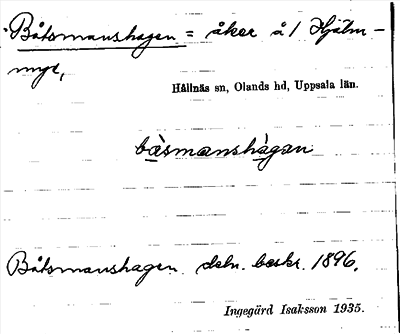 Båtsmanshagen = åker å/ Hjälm-
myr,
Hållnäs sn, Olands hd, Uppsala län.
bàsmanshàgan
Båtsmanshagen. deln. beskr. 1896.
Ingegärd Isaksson 1935.